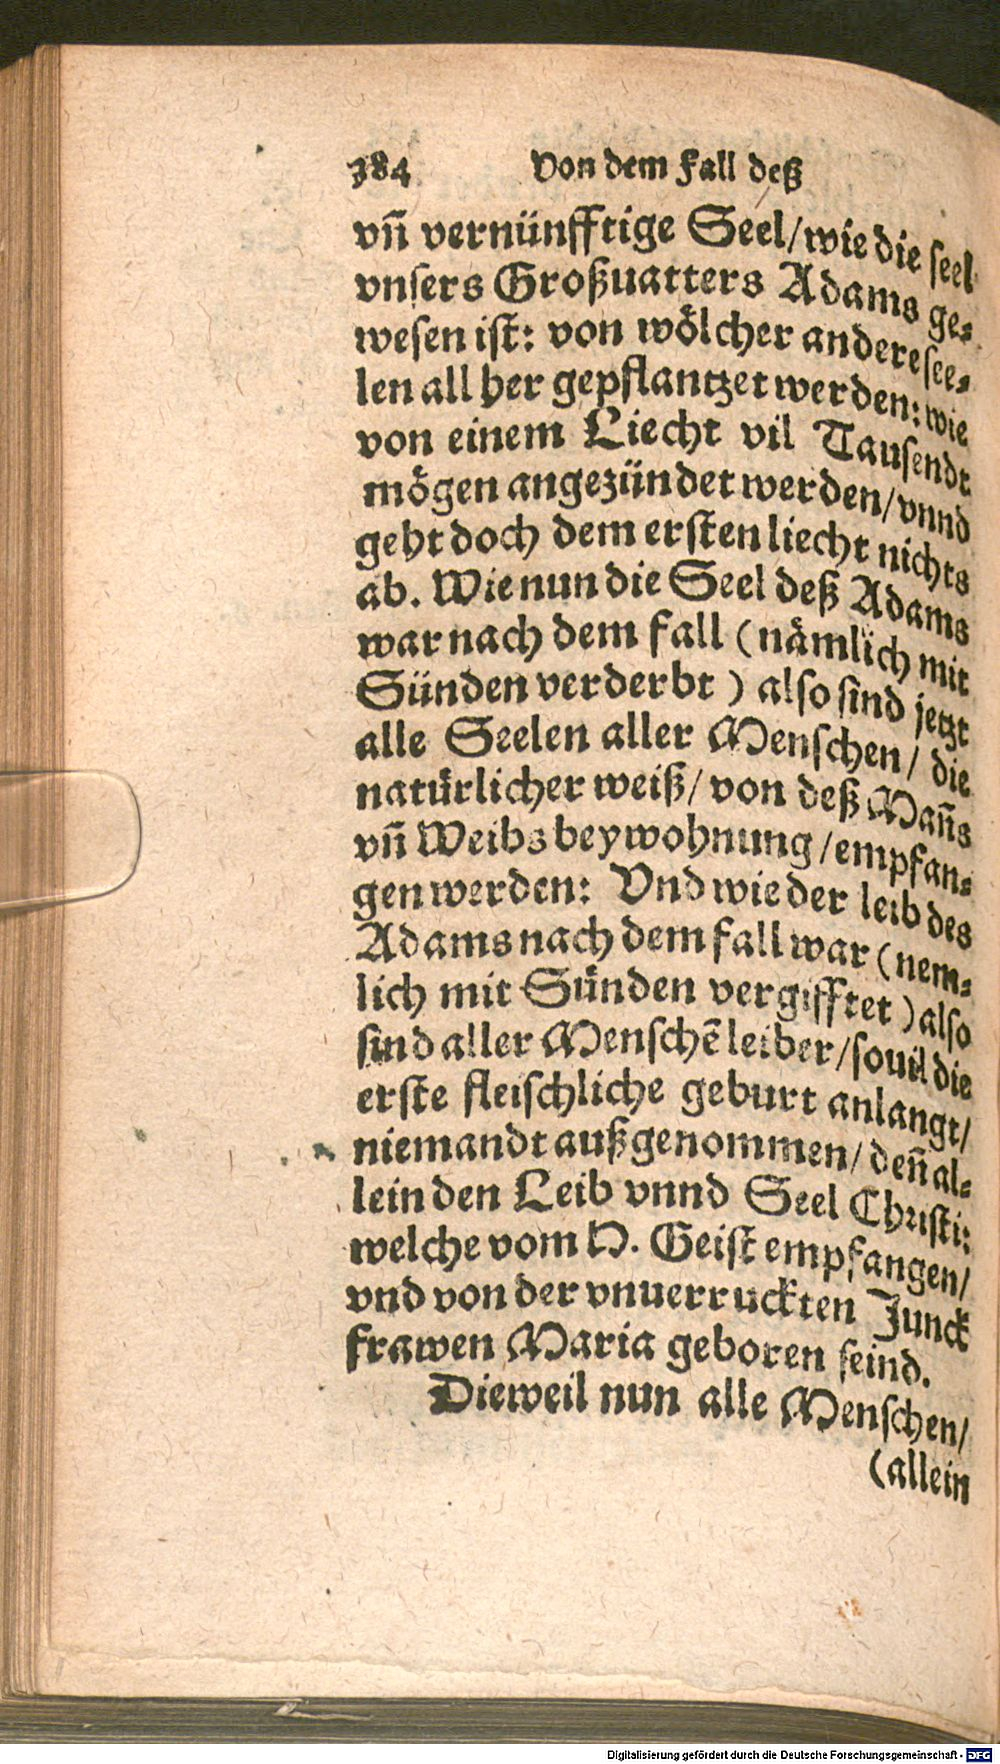 384 Von dem Fall deß
vñ vernünfftige Seel/wie die seel
vnsers Großuatters Adams ge-
wesen ist: von wölcher andere see-
len all her gepflantzet werden: wie
von einem Liecht vil Tausendt
mögen angezündet werden/vnnd
geht doch dem ersten liecht nichts
ab. Wie nun die Seel deß Adams
war nach dem fall (nämlich mit
Sünden verderbt) also sind jetzt
alle Seelen aller Menschen/ die
natürlicher weiß/ von deß Mañs
vñ Weibs beywohnung/empfan-
gen werden: Vnd wie der leib des
Adams nach dem fall war (nem-
lich mit Sünden vergifftet) also
sind aller Menschē leiber/souil die
erste fleischliche geburt anlangt/
niemandt außgenommen/ deñ al-
lein den Leib vnnd Seel Christi:
welche vom H. Geist empfangen/
vnd von der vnuerruckten Junck
frawen Maria geboren seind.
Dieweil nun alle Menschen/
(allein
Digitalisierung gefördert durch die Deutsche Forschungsgemeinschaft - DFG